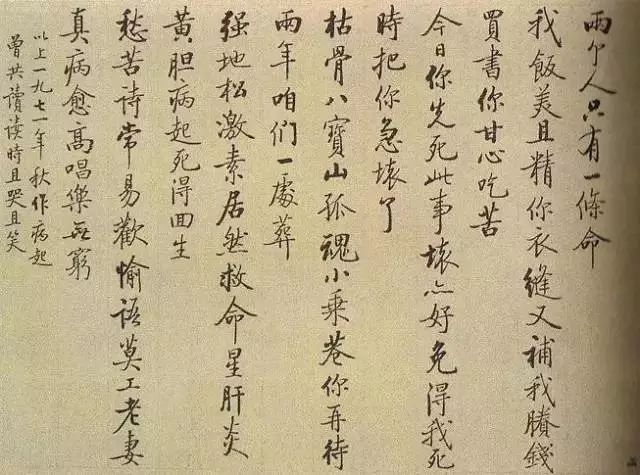 兩个人只有一條命
我飯美且精你衣縫又補我賸錢
買書你甘心吃苦
今日你先死此事壞亦好免得我死
時把你急壞了
枯骨八寶山孤魂小乘巷你再待
兩年咱們一處葬
强地松激素居然救命星肝炎
黄胆病起死得回生
愁苦诗常易歡愉语莫工老妻
真病愈高唱樂无窮
以上一九七一年秋作病起
曾共讀读時且哭且笑